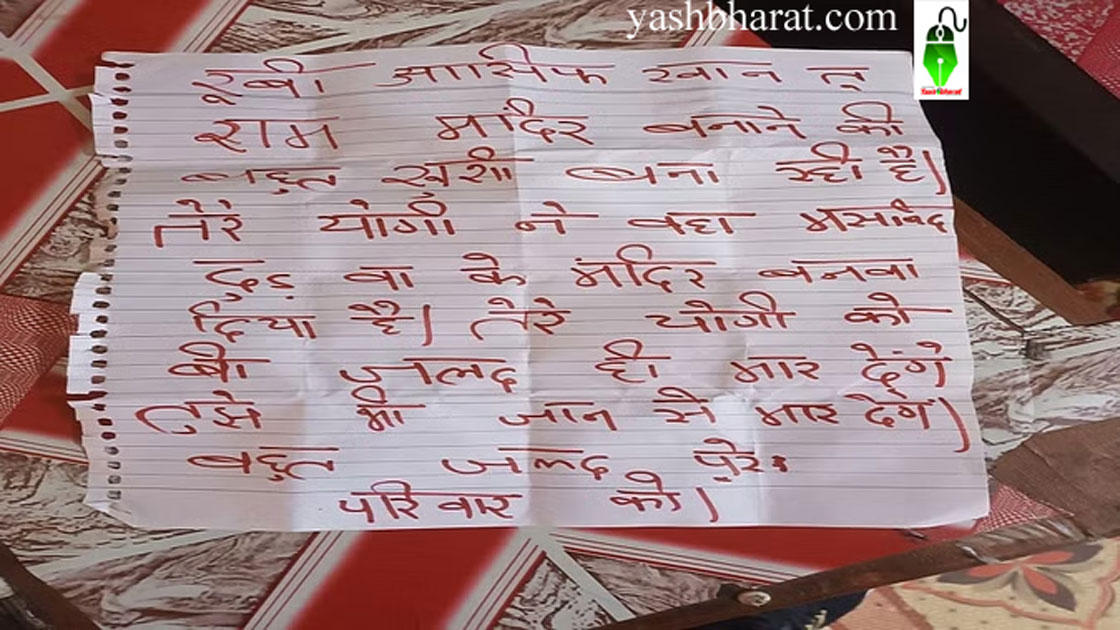 yashbharat.com
Yash Bharat
रूबी आसिफ खान तू
राम मंदिर बनाने की
बहुत खुशी बना रही है।
तेरे योगी ने वहा मसजिद
तुड़ वा के मंदिर बनवा
दिया है। तेरे योगी को
बी जलद ही मार देंगे
तुझे भी जान से मार देगं।
बहुत जलद पूरे
परिवार को।